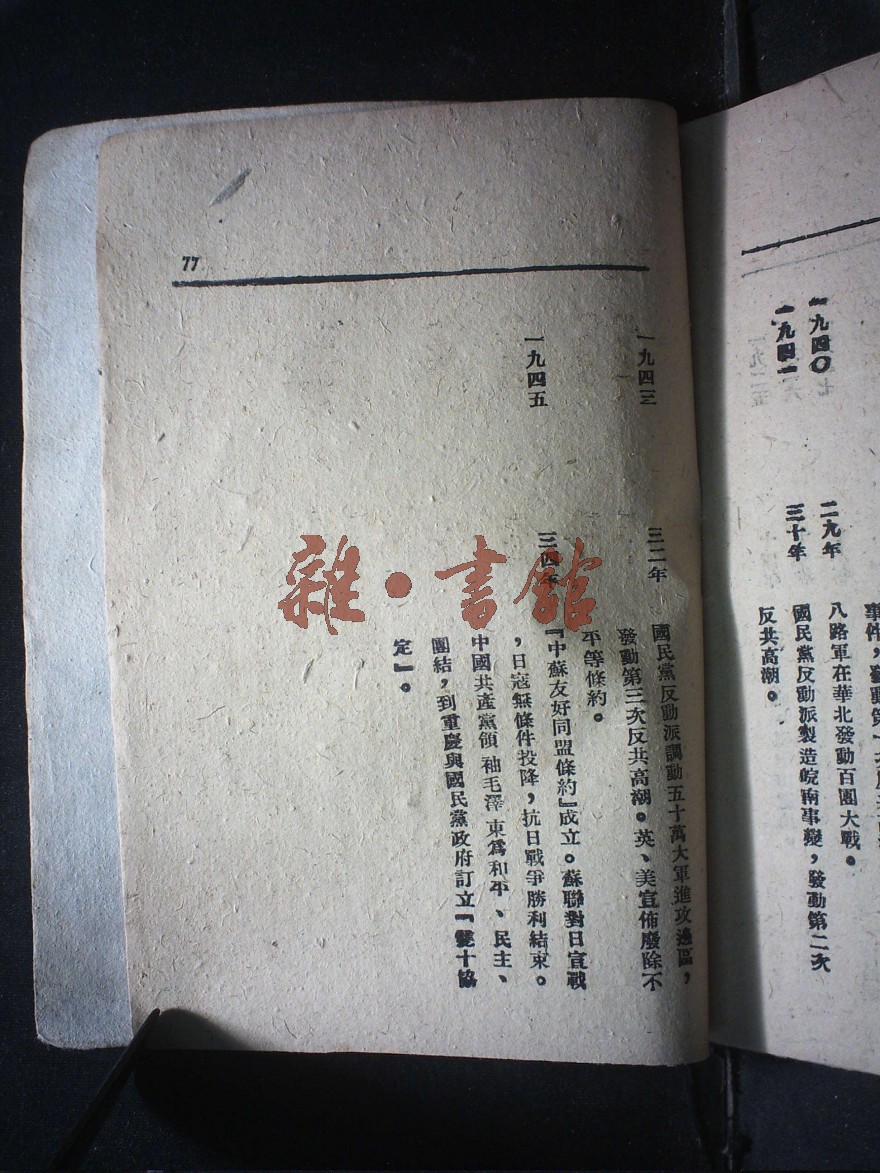 一九四〇
二九年
八路軍在華北發動百團大戰。
一九四一
三十年
國民黨反動派製造皖南事變，發動第二次
反共高潮。
77
一九四三
三二年
國民黨反動派調動五十萬大軍進攻邊區，
發動第三次反共高潮。英、美宣佈廢除不
平等條約。
一九四五
三四年
『中蘇友好同盟條約』成立。蘇聯對日宣戰
，日寇無條件投降，抗日戰爭勝利結束。
中國共產黨領袖毛澤東為和平、民主、
團結，到重慶與國民黨政府訂立『雙十協
定』。
雜·書館